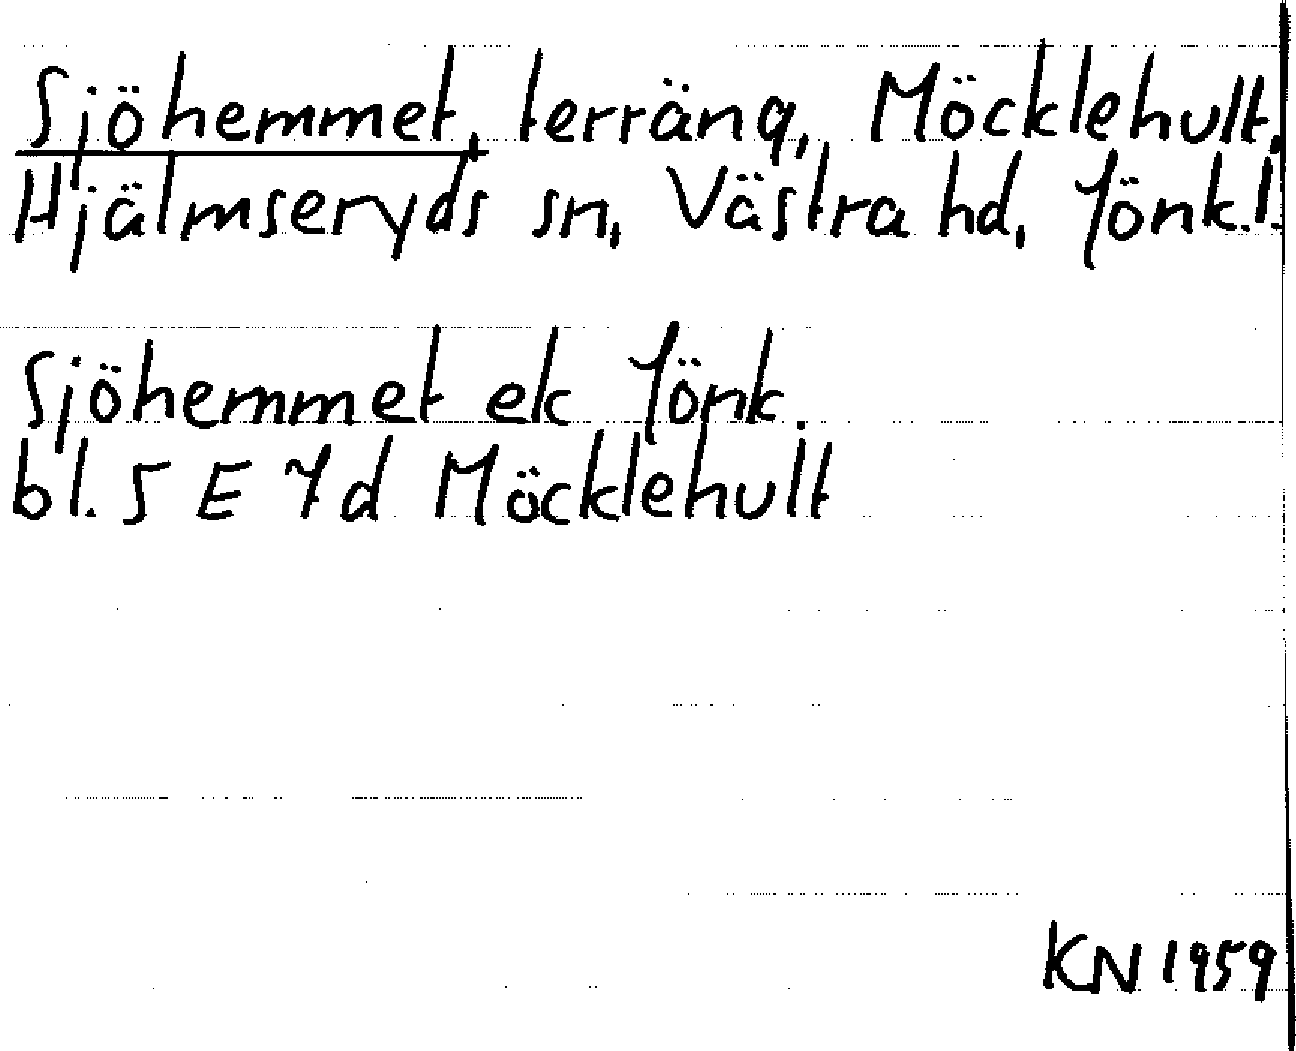 Sjöhemmet, terräng, Möcklehult,
Hjälmseryds sn, Västra hd, Jönk.l.
Sjöhemmet ek Jönk.
bl. 5 E 7d Möcklehult
KN 1959